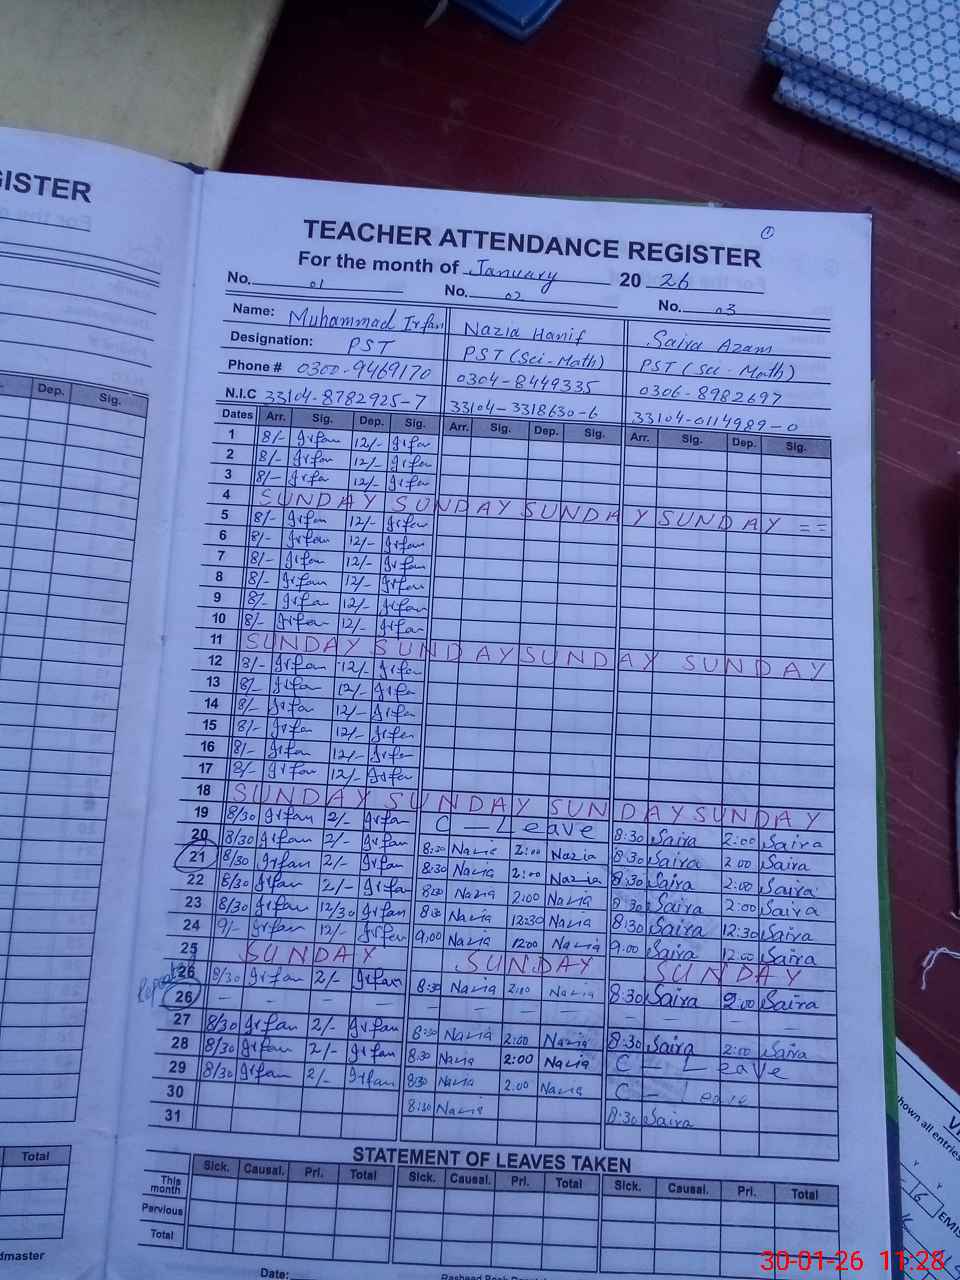 GISTER
TEACHER ATTENDANCE REGISTER
1
For the month of January 2026
No. 01 No. 02 No. 03
Name: Muhammad Irfan Nazia Hanif Saira Azam
Designation: PST PST (Sci-Math) PST (Sci-Math)
Phone # 0300-9469170 0304-8449335 0306-8982697
N.I.C 33104-8782925-7 33104-3318630-6 33104-0114989-0
Dep. Sig.
Dates Arr. Sig. Dep. Sig. Arr. Sig. Dep. Sig. Arr. Sig. Dep. Sig.
1 8/- Irfan 12/- Irfan
2 8/- Irfan 12/- Irfan
3 8/- Irfan 12/- Irfan
4 SUNDAY SUNDAY SUNDAY SUNDAY ==
5 8/- Irfan 12/- Irfan
6 8/- Irfan 12/- Irfan
7 8/- Irfan 12/- Irfan
8 8/- Irfan 12/- Irfan
9 8/- Irfan 12/- Irfan
10 8/- Irfan 12/- Irfan
11 SUNDAY SUNDAY SUNDAY SUNDAY
12 8/- Irfan 12/- Irfan
13 8/- Irfan 12/- Irfan
14 8/- Irfan 12/- Irfan
15 8/- Irfan 12/- Irfan
16 8/- Irfan 12/- Irfan
17 8/- Irfan 12/- Irfan
18 SUNDAY SUNDAY SUNDAY SUNDAY
19 8/30 Irfan 2/- Irfan C - Leave 8:30 Saira 2:00 Saira
20 8/30 Irfan 2/- Irfan 8:30 Nazia 2:00 Nazia 8:30 Saira 2:00 Saira
21 8/30 Irfan 2/- Irfan 8:30 Nazia 2:00 Nazia 8:30 Saira 2:00 Saira
22 8/30 Irfan 2/- Irfan 8:30 Nazia 2:00 Nazia 8:30 Saira 2:00 Saira
23 8/30 Irfan 12/30 Irfan 8:30 Nazia 12:30 Nazia 8:30 Saira 12:30 Saira
24 9/- Irfan 12/- Irfan 9:00 Nazia 12:00 Nazia 9:00 Saira 12:00 Saira
25 SUNDAY SUNDAY SUNDAY
26 8/30 Irfan 2/- Irfan 8:30 Nazia 2:00 Nazia 8:30 Saira 2:00 Saira
26 - - - - - - - - - - - -
27 8/30 Irfan 2/- Irfan 8:30 Nazia 2:00 Nazia 8:30 Saira 2:00 Saira
28 8/30 Irfan 2/- Irfan 8:30 Nazia 2:00 Nazia C - Leave
29 8/30 Irfan 2/- Irfan 8:30 Nazia 2:00 Nazia C - Leave
30 8:30 Nazia 8:30 Saira
31
STATEMENT OF LEAVES TAKEN
Total
Sick. Causal. Pri. Total Sick. Causal. Pri. Total Sick. Causal. Pri. Total
This month
Pervious
Total
dmaster
Date:
hown all entries
16
EMIS
30-01-26 11:28